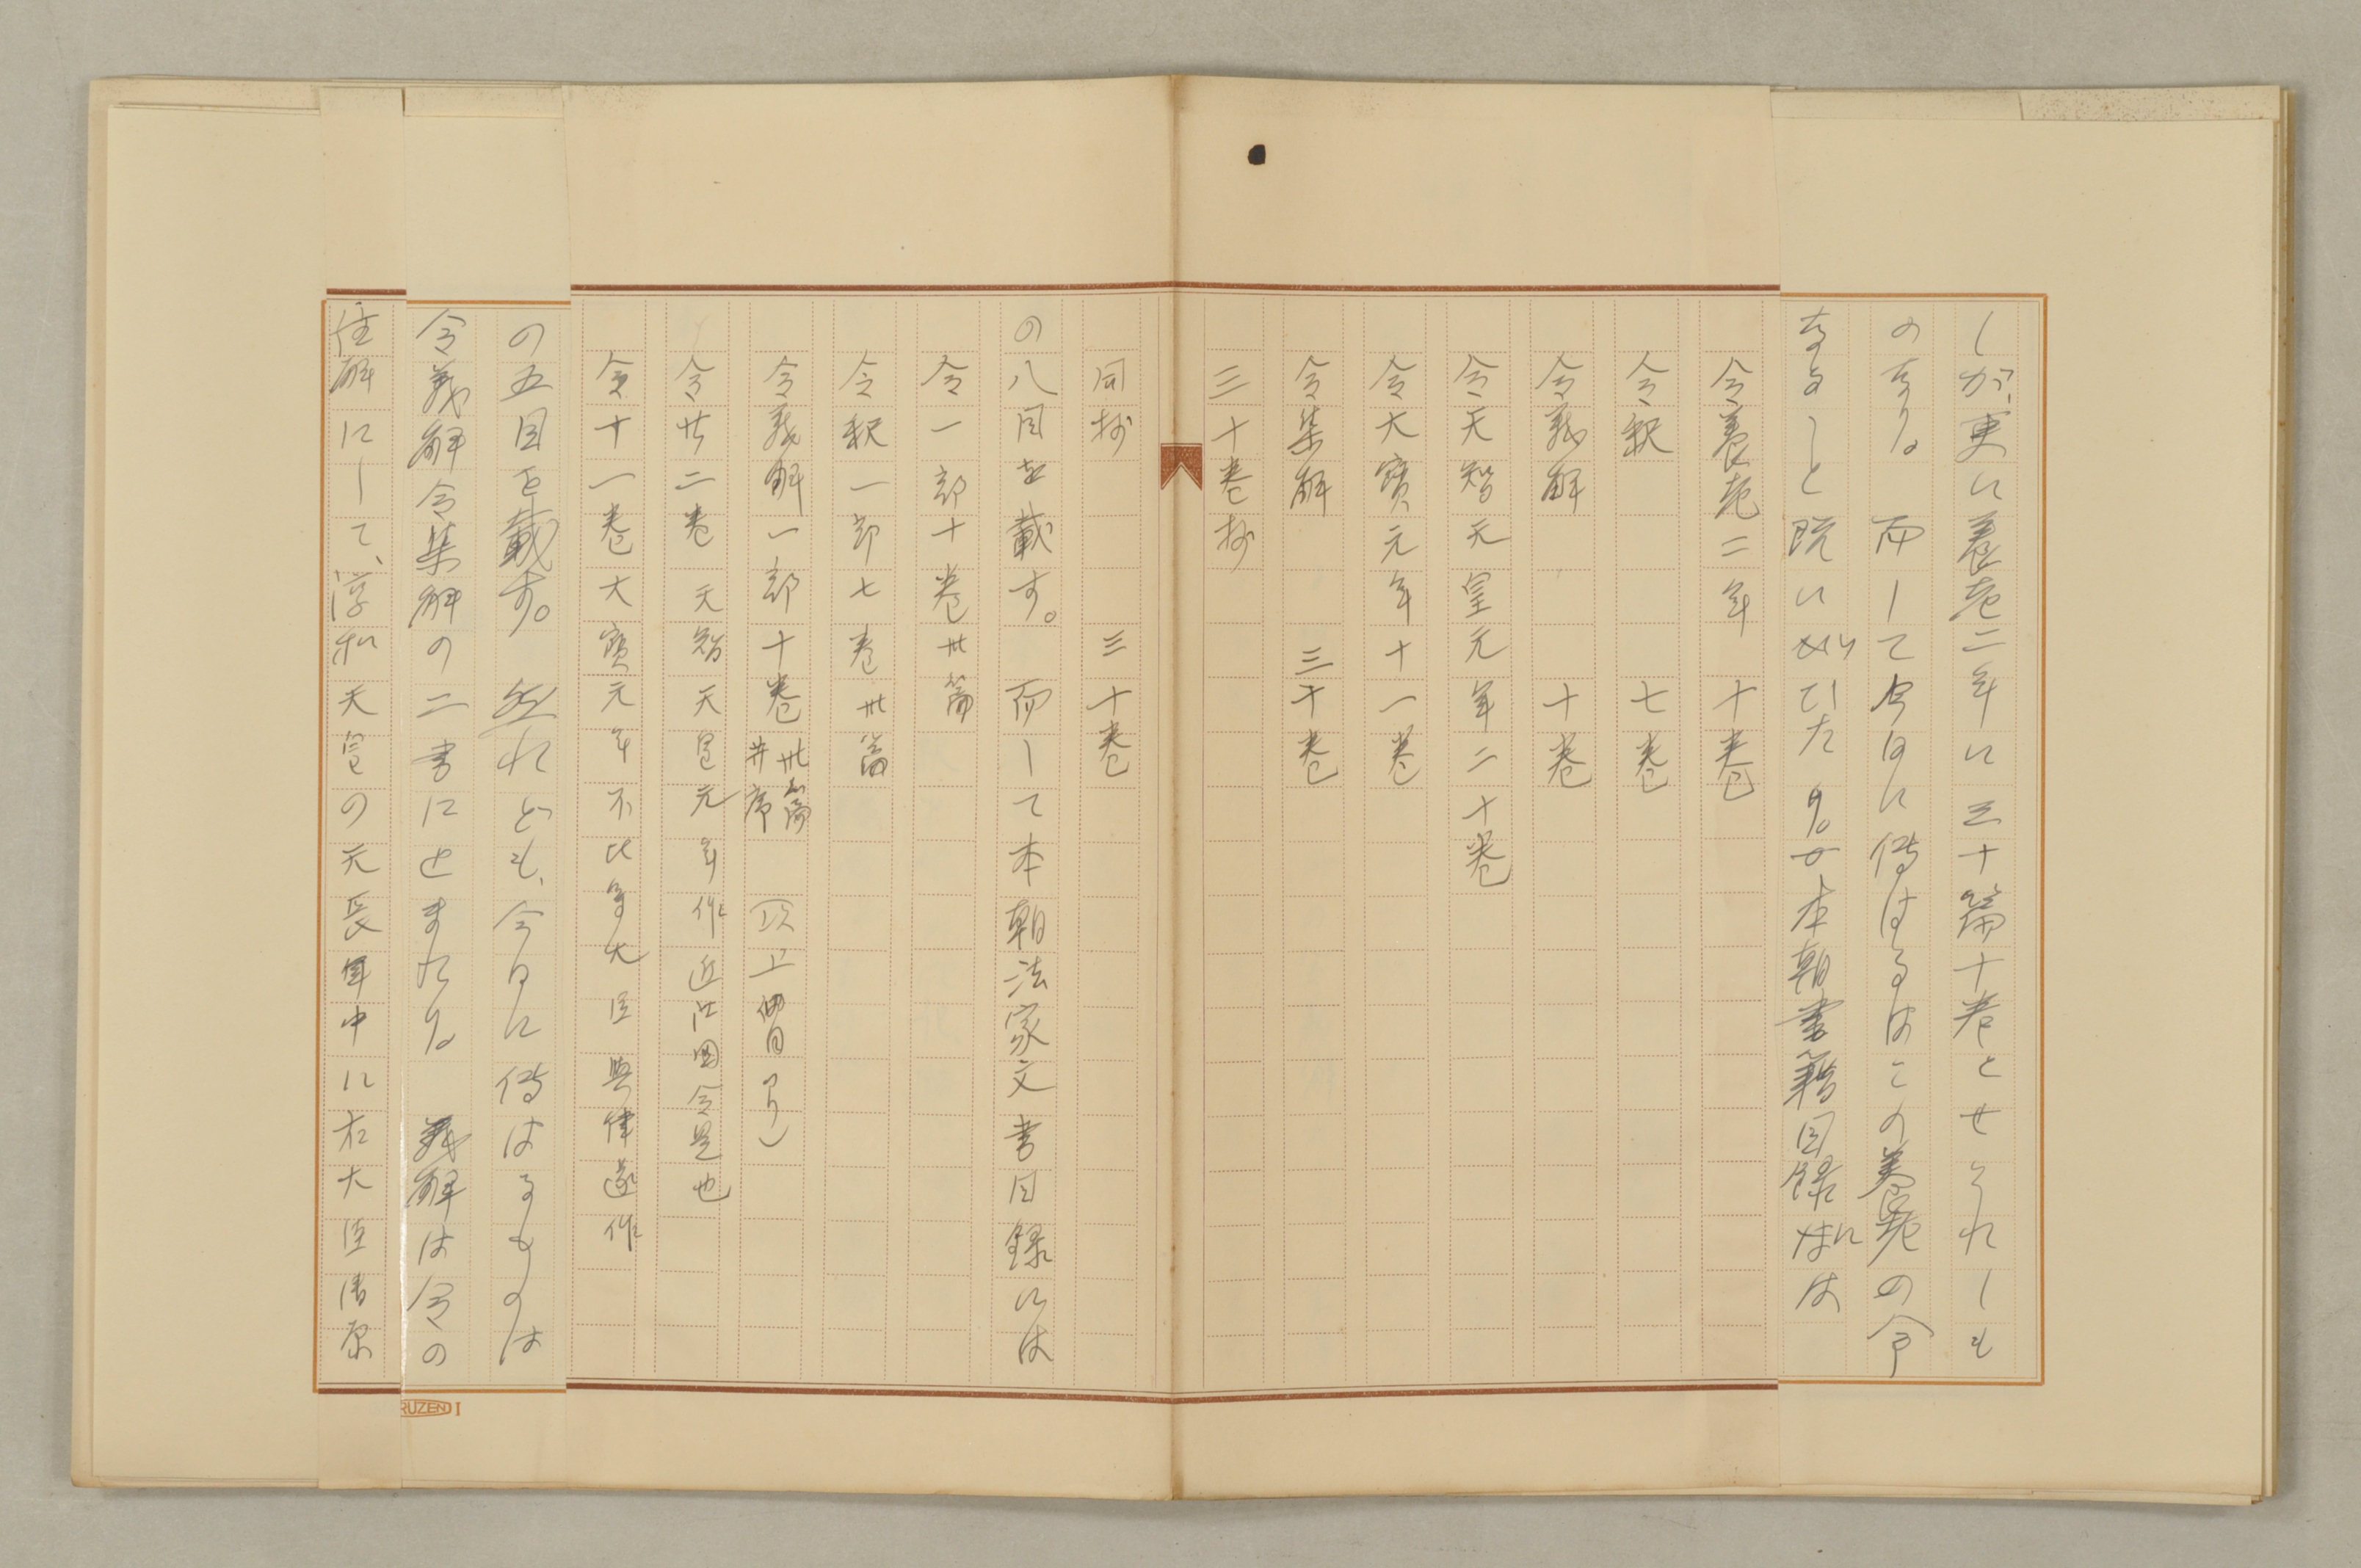 しが、更に養老二年に三十篇十巻とせられしも
のなり。而して今日に傳はるはこの養老の令
なること既に
本朝書籍目録には
令養老二年 十巻
令釈 七巻
令義解 十巻
令天智天皇元年二十巻
令大寶元年十一巻
令集解 三十巻
三十巻抄
同抄 三十巻
の八目を載す。而して本朝法家文書目録には
令一部十巻卅篇
令釈一部七巻卅篇
令義解一部十巻卅篇并序
令廿二巻 天智天皇元年作近江国令是也
令十一巻大寶元年不比等大臣與律遂作
の五目を載す。然れども、今日に傳はるものは
令義解令集解の二書にとまれり。義解は令の
注解にして、淳和天皇の天長年中に右大臣清原
RUZEN I